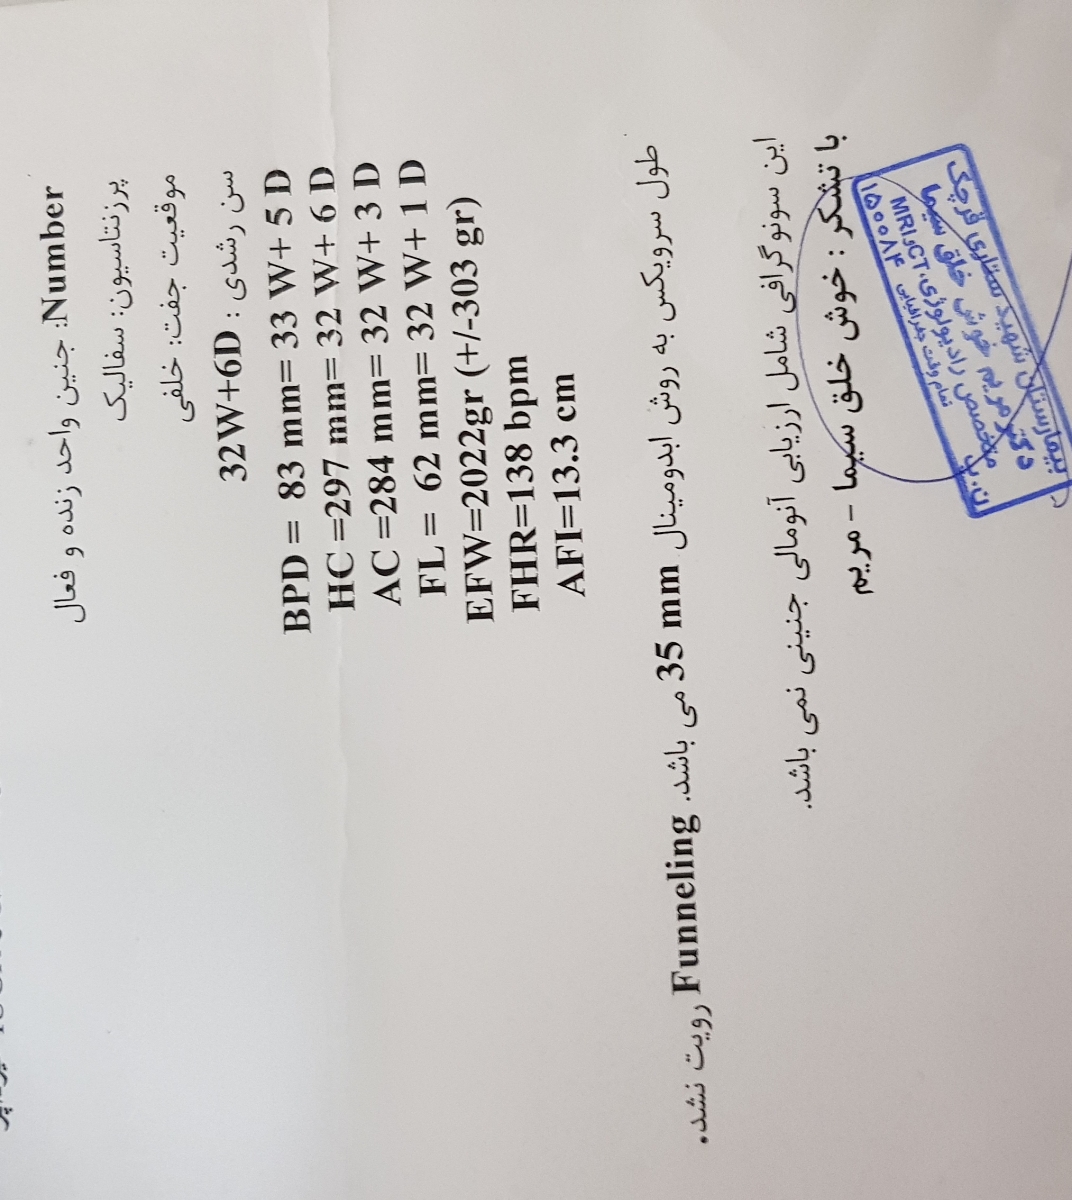 Number: جنین واحد زنده و فعال
پرزنتاسیون: سفالیک
موقعیت جفت: خلفی
سن رشدی : 32W+6D
BPD = 83 mm= 33 W+ 5 D
HC =297 mm= 32 W+ 6 D
AC =284 mm= 32 W+ 3 D
FL = 62 mm= 32 W+ 1 D
EFW=2022gr (+/-303 gr)
FHR=138 bpm
AFI=13.3 cm
طول سرویکس به روش ابدومینال 35 mm می باشد. Funneling رویت نشد.
این سونوگرافی شامل ارزیابی آنومالی جنینی نمی باشد.
با تشکر : خوش خلق سیما - مریم
بیمارستان شهید ستاری قرچک
دکتر مریم خوش خلق سیما
متخصص رادیولوژی، CT و MRI
تمام وقت جغرافیایی
ن.پ ۱۵۰۰۸۴